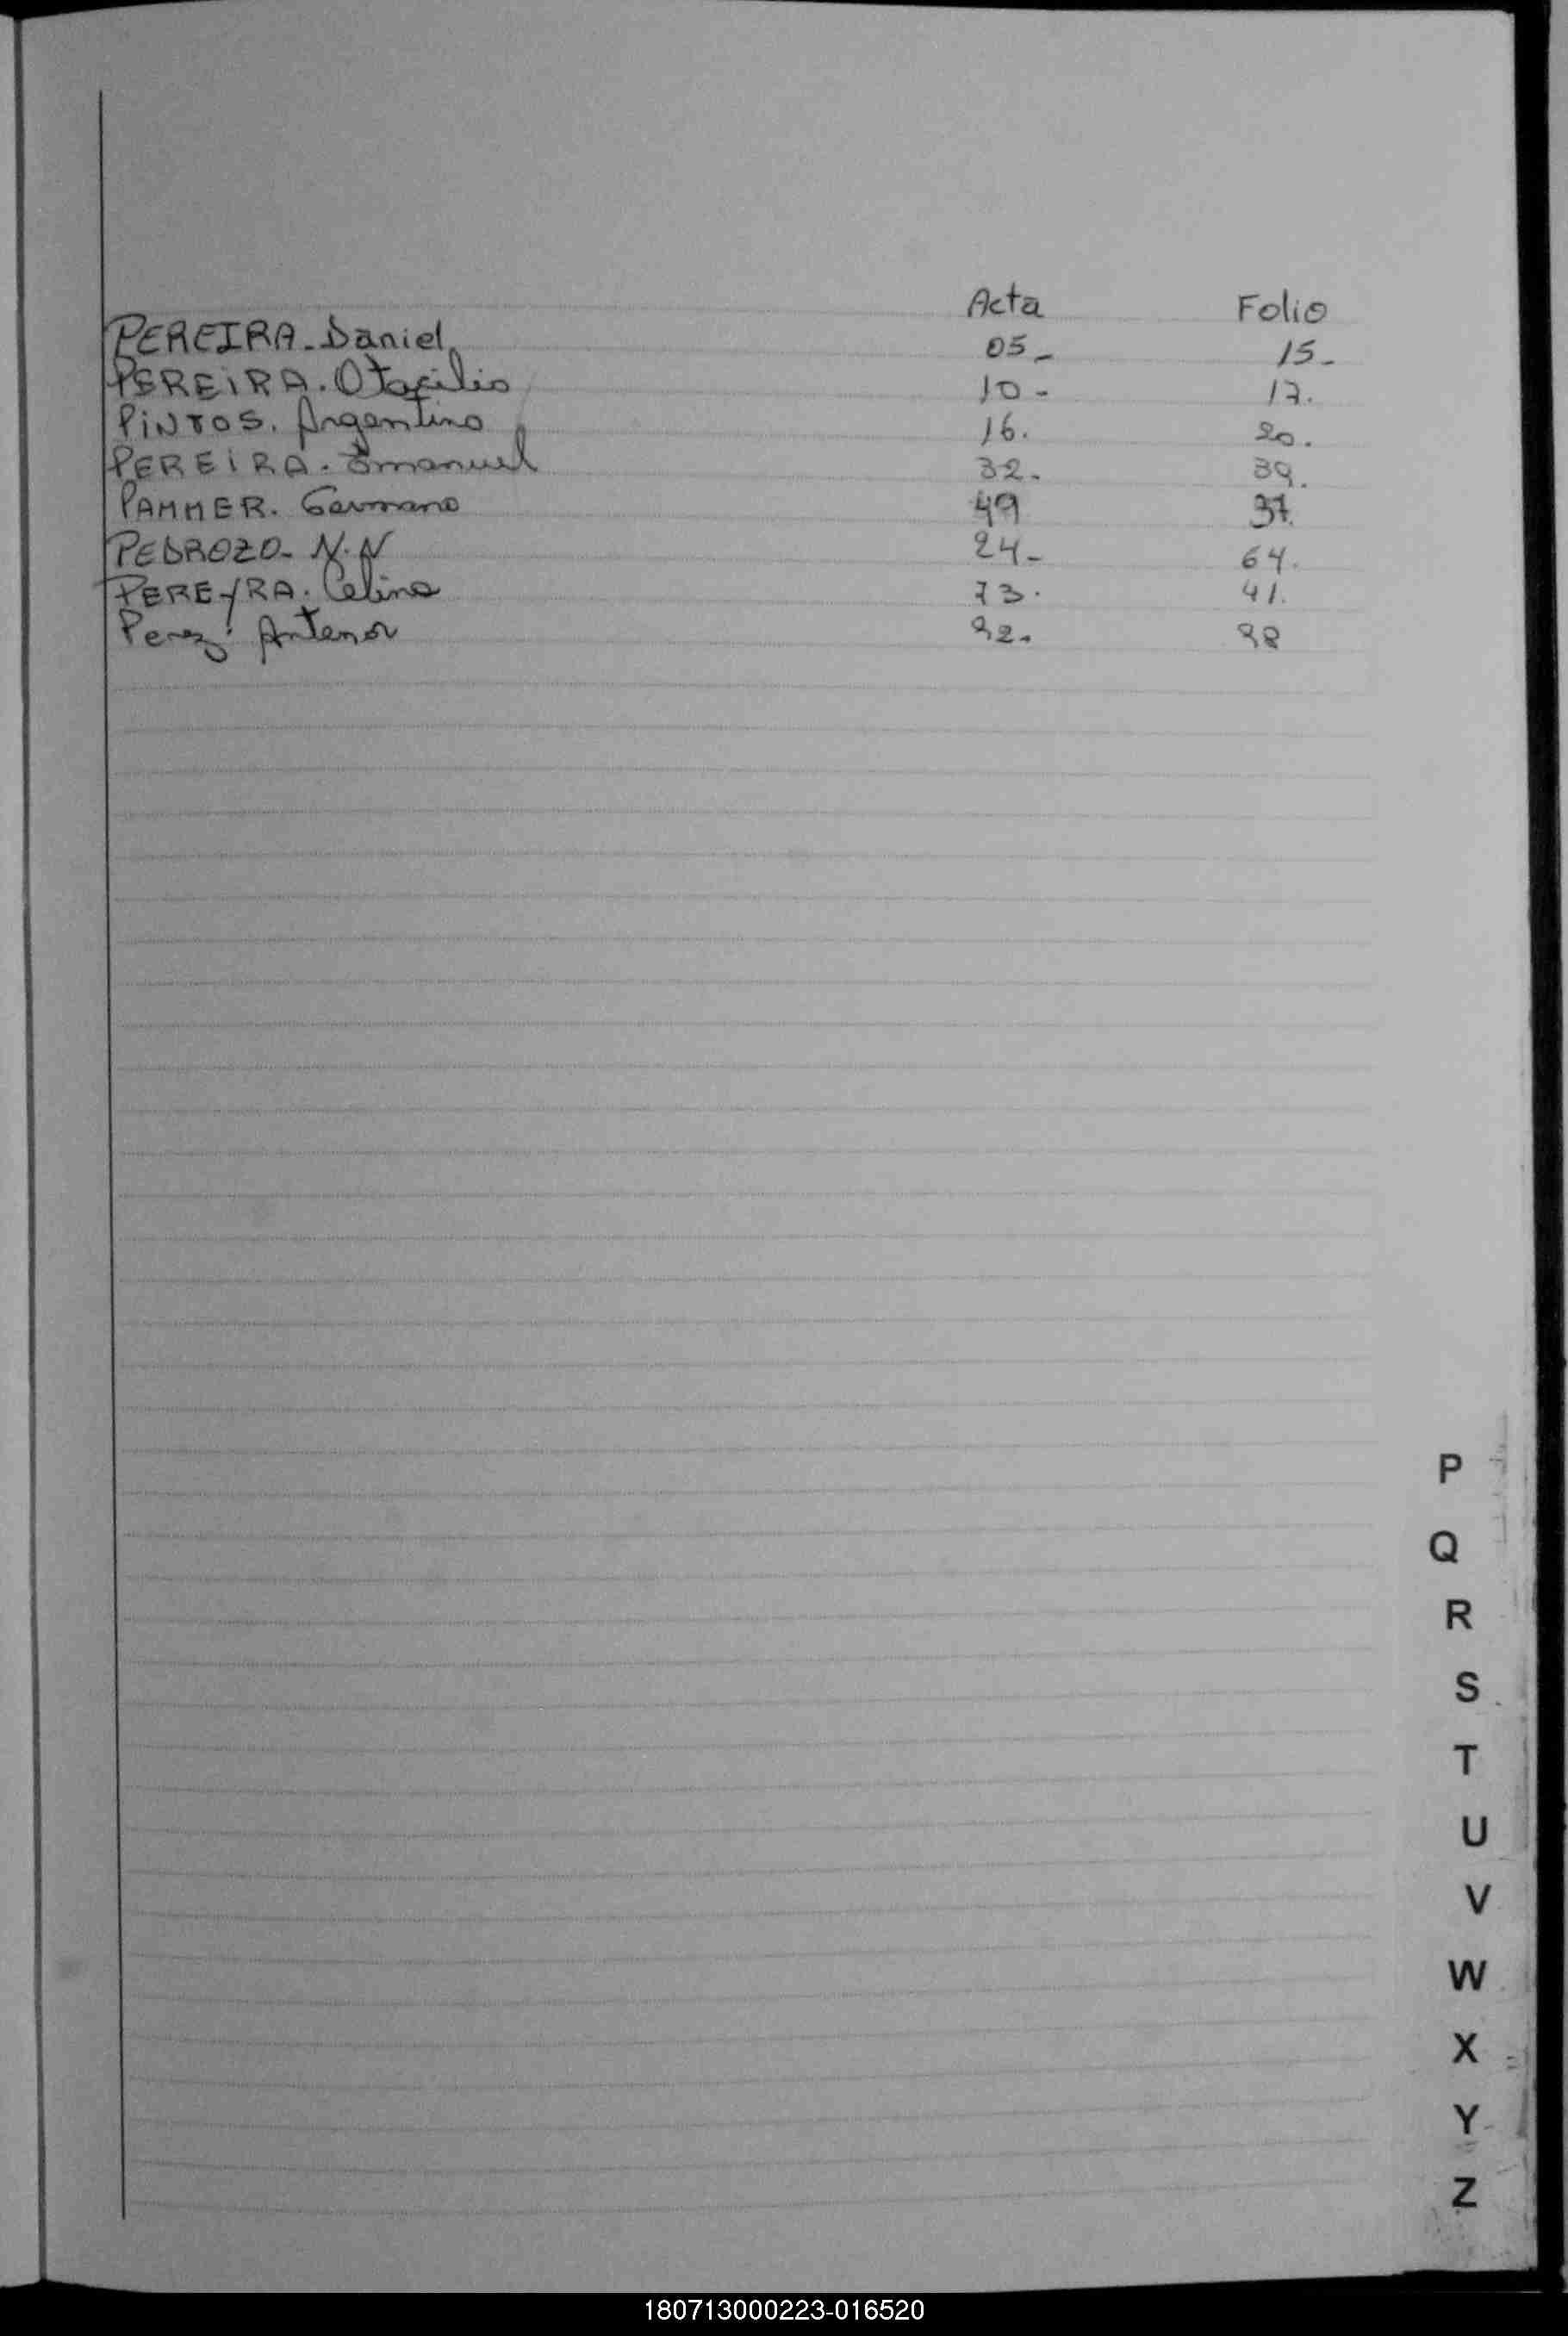 Acta Folio
PEREIRA - Daniel 05 - 15 -
PEREIRA. Otacilio 10 - 17.
PiNTOS. Argentino 16. 20.
PEREiRA. Emanuel 32. 39.
PAMMER. Germano 49 37.
PEDROZO - N.N 24 - 64.
PEREYRA. Celina 73. 41.
Perez. Antenor 92.
P
Q
R
S
T
U
V
W
X
Y
Z
180713000223-016520